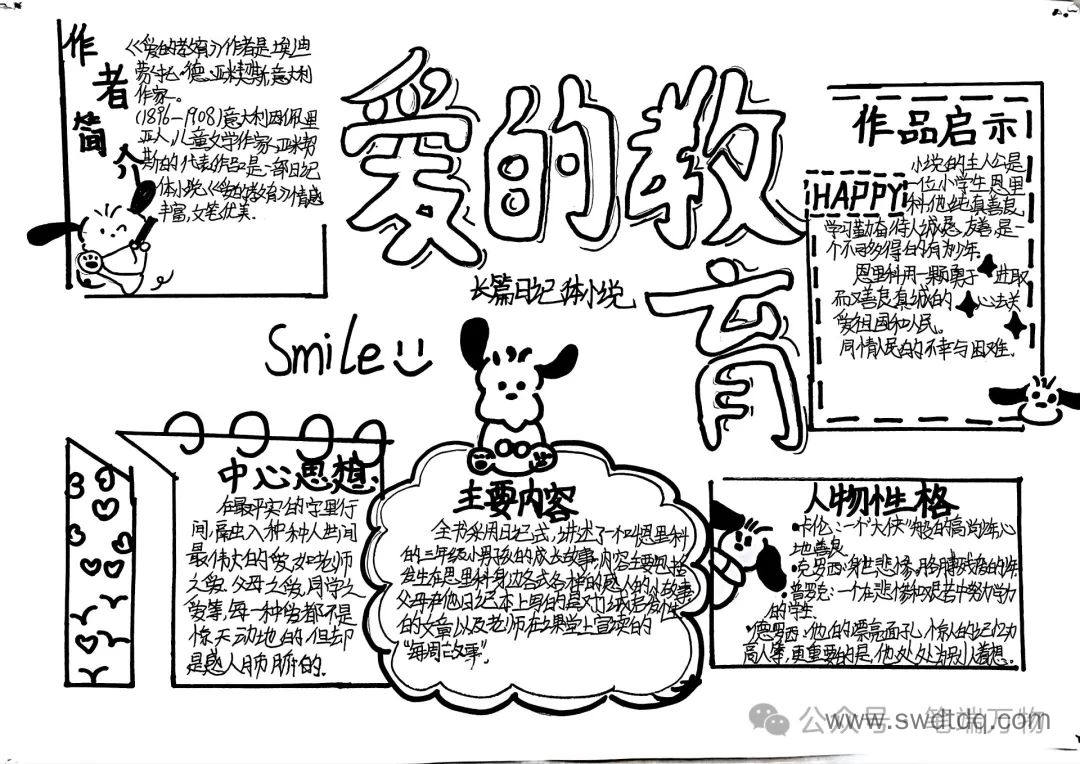 爱的教育
长篇日记体小说
Smile
作者简介
《爱的教育》作者是埃迪
蒙托·德·亚米契斯,意大利
作家。
(1846-1908)意大利因佩里
亚人,儿童文学作家,亚米契
斯的代表作品是一部日记
体小说《爱的教育》情感
丰富,文笔优美.
作品启示
HAPPY
小说的主人公是
一位小学生恩里
科,他纯真善良,
学习勤奋,待人诚恳、友善,是一
个不可多得的有为少年。
恩里科用一颗勇于进取
而又善良真诚的心去关
爱祖国和人民。
同情人民的不幸与困难.
中心思想
在最平实的字里行
间,融入种种人世间
最伟大的爱,如老师
之爱、父母之爱,同学之
爱等,每一种爱都不是
惊天动地的,但却
是感人肺腑的.
主要内容
全书采用日记式,讲述了一个叫恩里科
的三年级小男孩的成长故事,内容主要包括
发生在恩里科身边各式各样的感人的小故事、
父母在他日记本上写的
的文章以及老师在课堂上宣读的
"每周故事".
人物性格
卡伦:一个"大侠"般的高尚少年,心
地善良
克罗西:身世悲惨、胳膊残疾的少年
普罗克:一个在悲惨和艰苦中努力学习
的学生.
德罗西:他的漂亮面孔,惊人的记忆力
高人一等,更重要的是,他处处为别人着想.
公众号·笔端万物
www.swdtdq.com